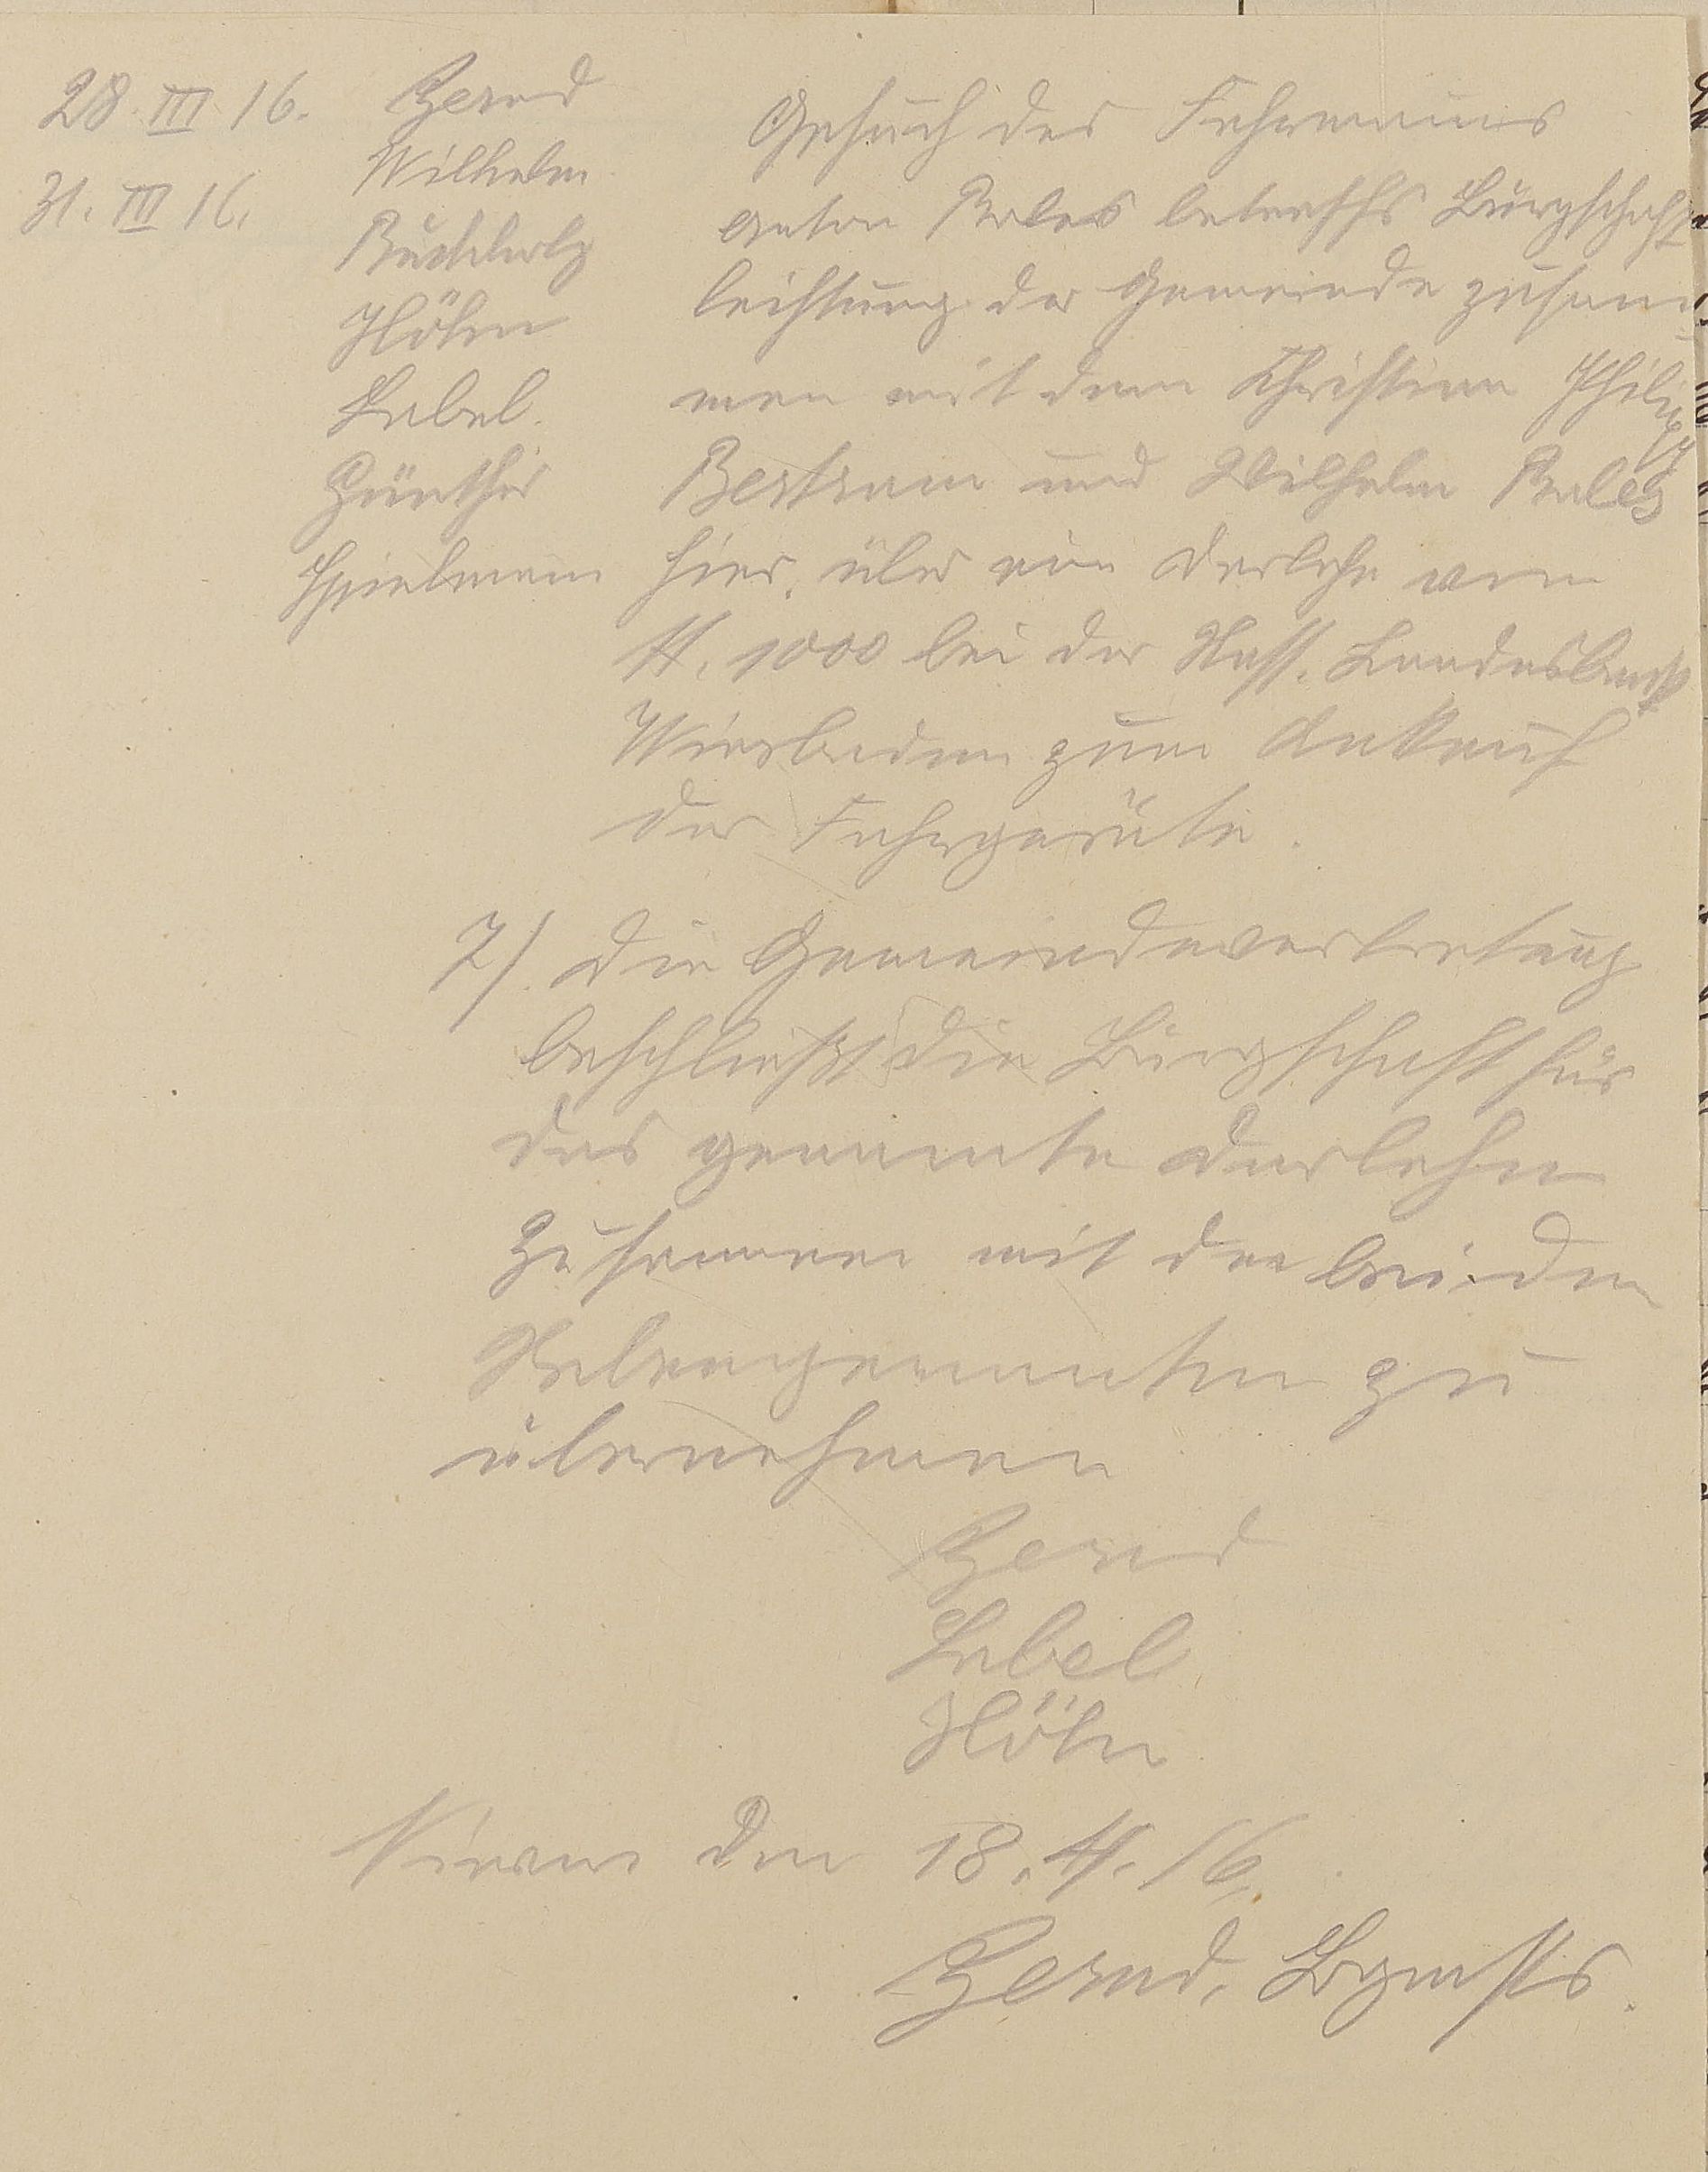 28. III 16.
31. III 16.
Zernd
Wilhelm
Buchholz
Höhn
Label.
Günther
Spielmann
Gesuch des Fuhrmanns
Anton Bales betreffs Bürgschaft
leistung der Gemeinde zusam-
men mit dem Christian Philipp
Bertram und Wilhelm Bales
hier, über ein Darlehn von
M. 1000 bei der Nass. Landesbank
Wiesbaden zum Ankauf
der Fuhrgeräte.
2/. Die Gemeindevertretung
beschließt die Bürgschaft für
das genannte Darlehn
zusammen mit den beiden
Obengenannten zu
übernehmen
Zernd
Label
Höhn
Nievern den 18. 4. 16.
Zernd, Bgmstr.